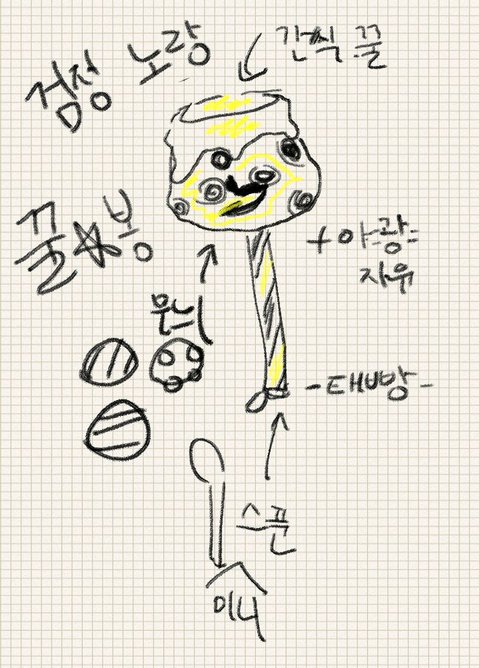 검정 노랑
간씩 꿀
꿀☆봉
+야광=
자유
무늬
-태빠방-
스푼
미니